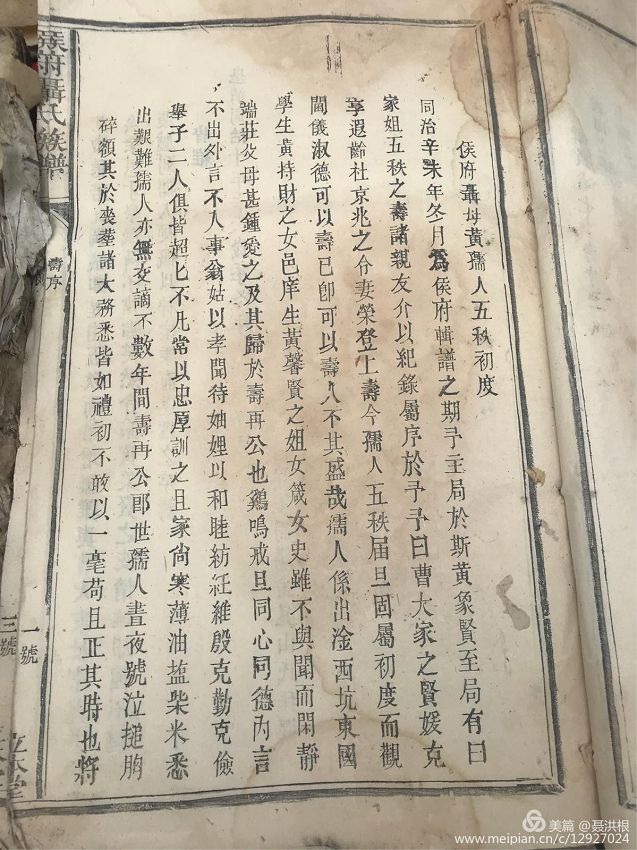 侯府聶母黃孺人五秩初度
同治辛未年冬月爲侯府輯譜之期予主局於斯黃象賢至局有曰
家姐五秩之壽諸親友介以紀錄屬序於予予曰曹大家之賢媛克
享遐齡杜京兆之令妻榮登上壽今孺人五秩届旦固屬初度而觀
閫儀淑德可以壽已卽可以壽人不其盛哉孺人係出淦西坑東國
學生黃持財之女邑庠生黃馨賢之姐女箴女史雖不與聞而閑靜
端莊父母甚鍾愛之及其歸於壽再公也鷄鳴戒旦同心同德內言
不出外言不入事翁姑以孝聞待妯娌以和睦紡紝維殷克勤克儉
舉子二人俱皆超匕不凡常以忠厚訓之且家尙寒薄油塩柴米悉
出艱難孺人亦無交謫不數年間壽再公卽世孺人晝夜號泣搥胸
碎額其於喪塟諸大務悉皆如禮初不敢以一毫苟且正其時也將
侯府聶氏族樂
壽序
一號
三號
美篇 @聂洪根
www.meipian.cn/c/12927024